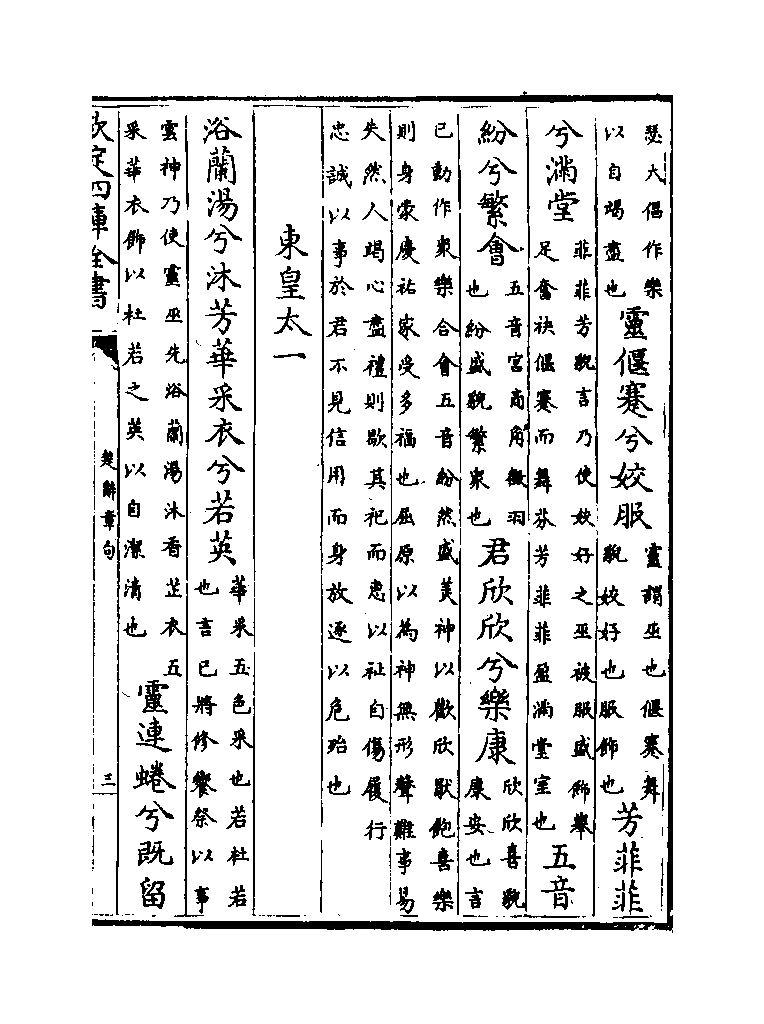 瑟大倡作樂以自竭盡也靈偃蹇兮姣服靈謂巫也偃蹇舞貌姣好也服飾也芳菲菲
兮滿堂菲菲芳貌言乃使姣好之巫被服盛飾舉足奮袂偃蹇而舞芬芳菲菲盈滿堂室也五音
紛兮繁會五音宫商角徵羽也紛盛貌繁衆也君欣欣兮樂康欣欣喜貌康安也言
已動作衆樂合會五音紛然盛美神以歡欣猒飽喜樂
則身蒙慶祐家受多福也屈原以為神無形聲難事易
失然人竭心盡禮則歆其祀而惠以祉自傷履行
忠誠以事於君不見信用而身放逐以危殆也
東皇太一
浴蘭湯兮沐芳華采衣兮若英華采五色采也若杜若也言已將修饗祭以事
雲神乃使靈巫先浴蘭湯沐香芷衣五采華衣飾以杜若之英以自潔清也靈連蜷兮既留
欽定四庫全書
楚辭章句
三